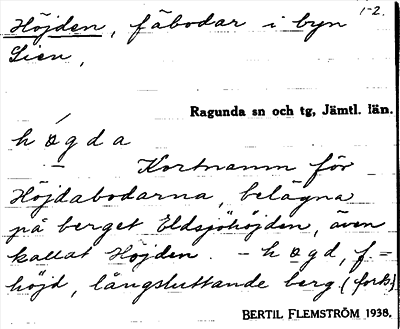 1-2.
Höjden, fäbodar i byn
Lien,
Ragunda sn och tg, Jämtl. län.
hǿ̱gda
Kortnamn för
Höjdabodarna, belägna
på berget Eldsjöhöjden, även
kallat Höjden. - hø̱gd, f. =
höjd, långsluttande berg (forts.)
BERTIL FLEMSTRÖM 1938.